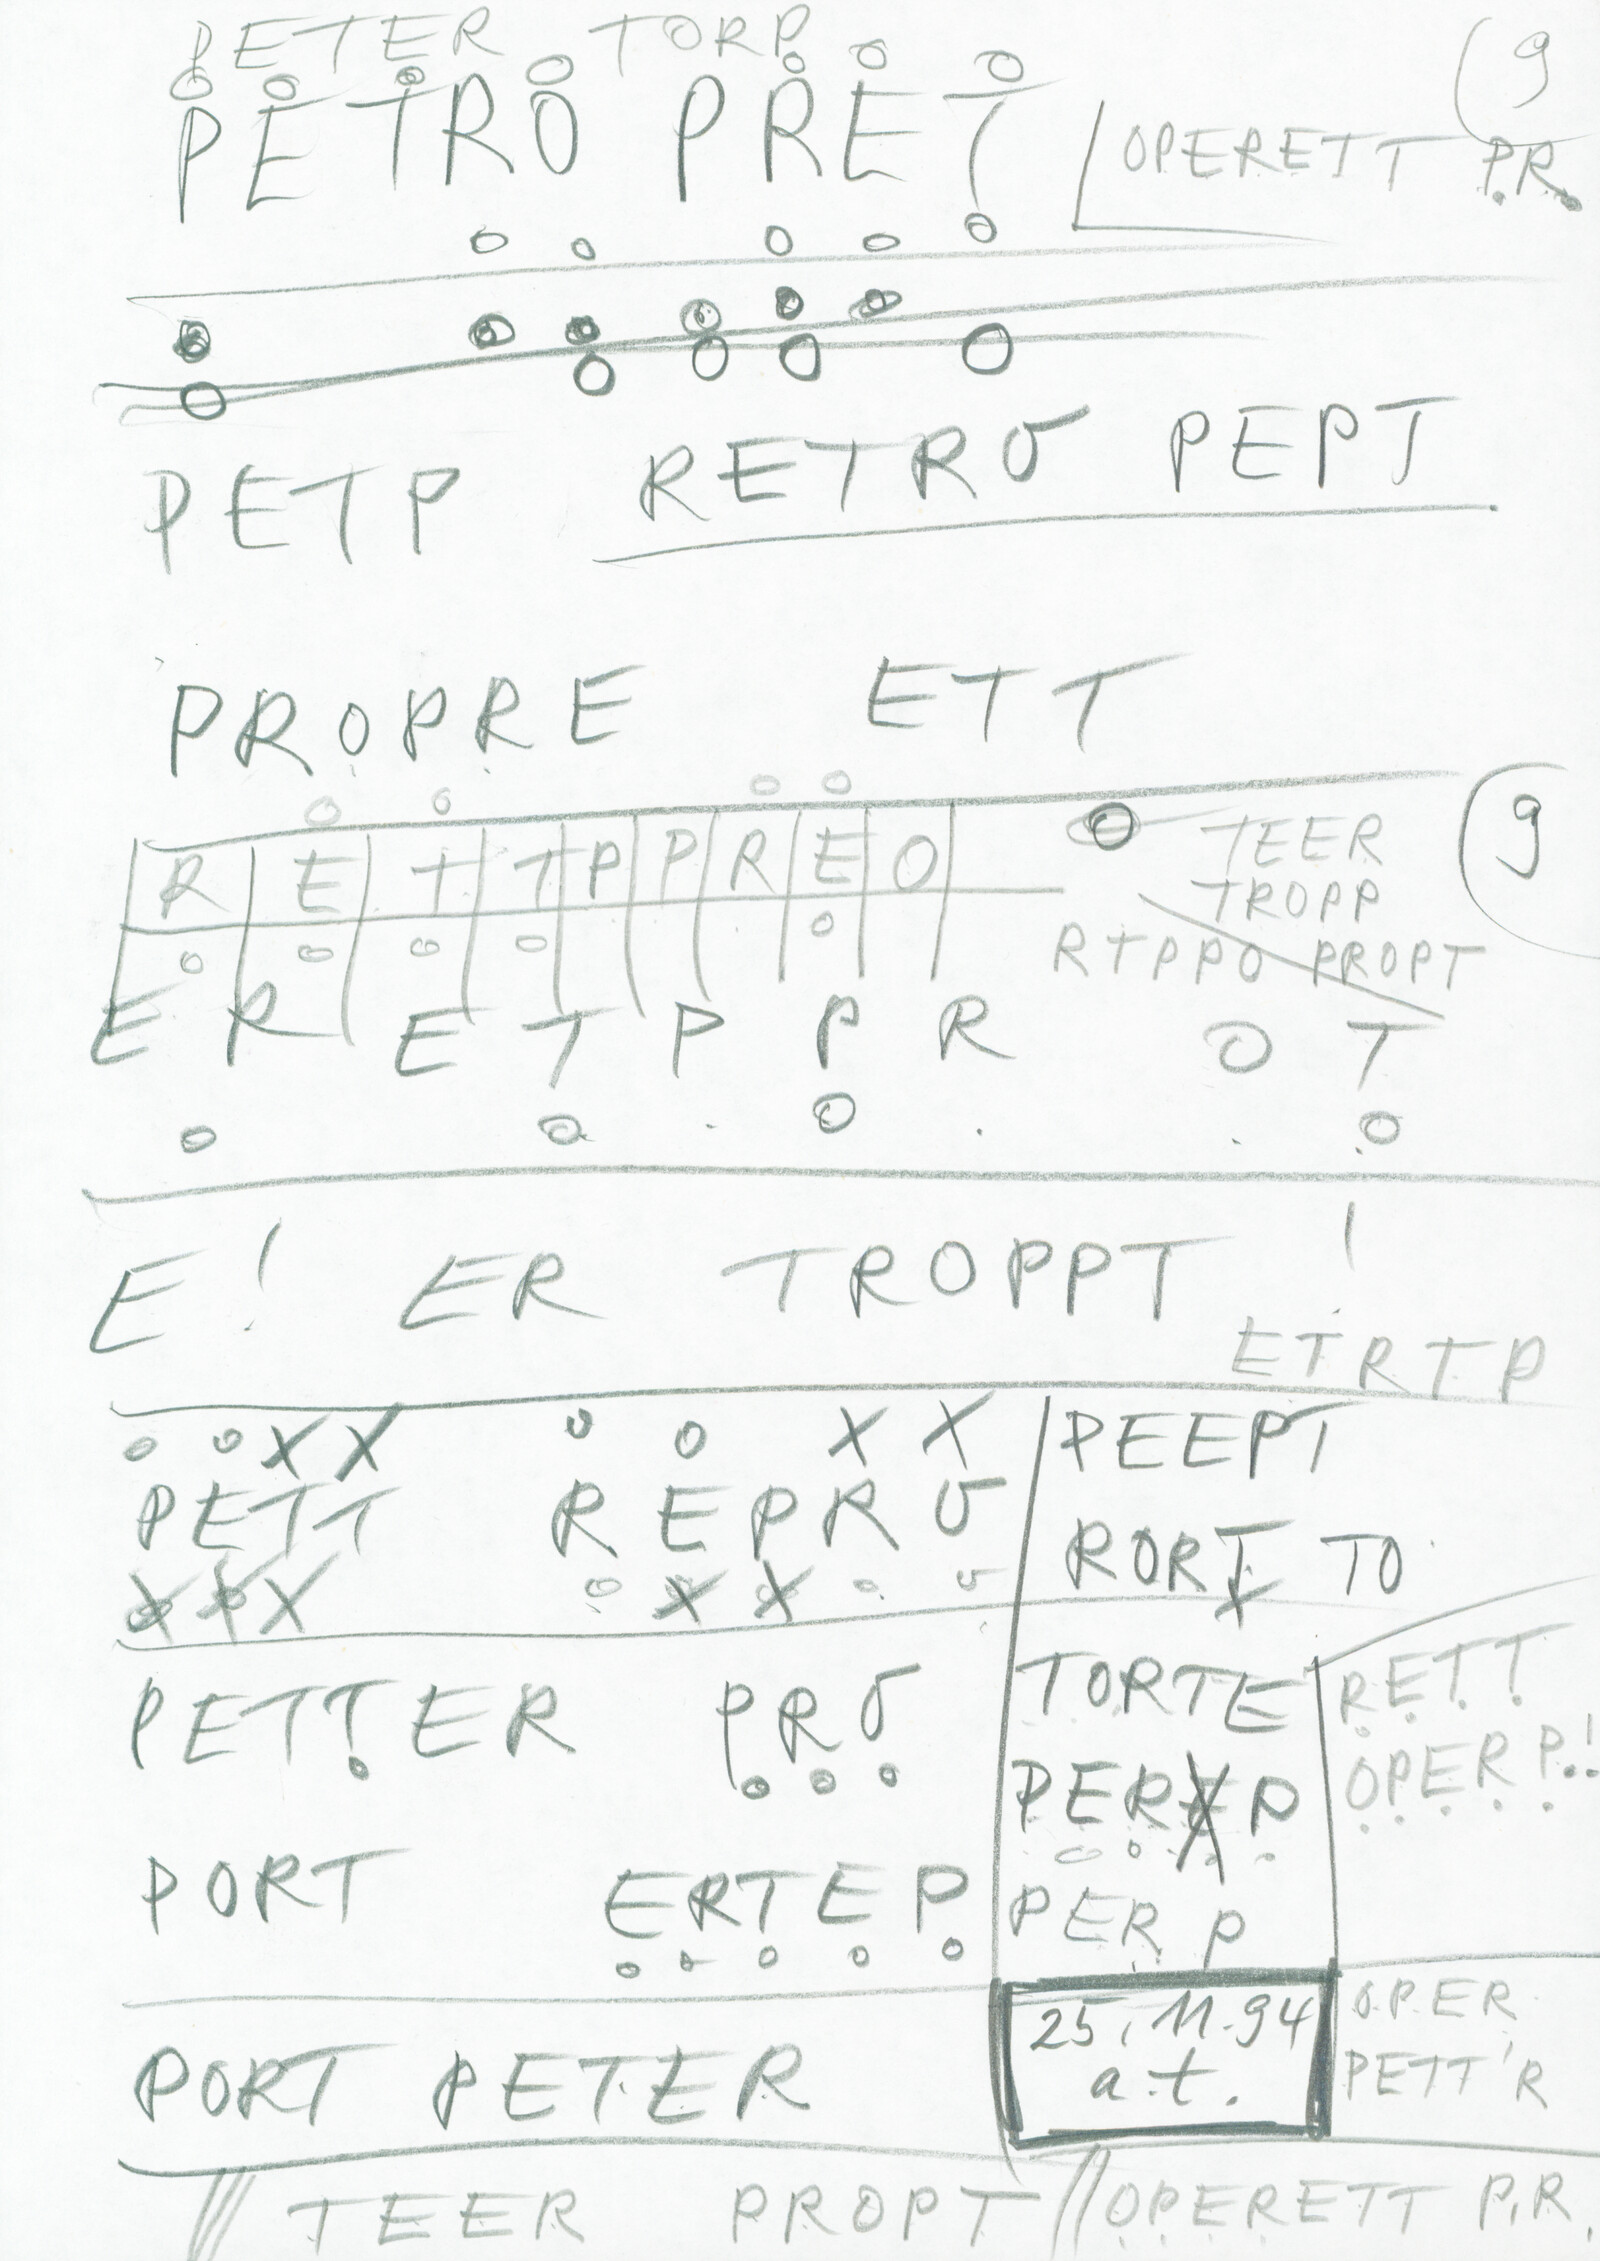 PETER TORP
9
PETRO PRET
OPERETT P.R.
PETP RETRO PEPT
PROPRE ETT
9
R E T T P P R E O
TEER
TROPP
RTPPO PROPT
E R E T P P R O T
E! ER TROPPT!
ETRTP
PETT REPRO
PEEPT
RORT TO
PETTER PRO
TORTE
PER P
RETT
OPER P.!
PORT ERTEP
PER P
25.11.94
a.t.
OPER
PETT'R
PORT PETER
// TEER PROPT // OPERETT P.R.